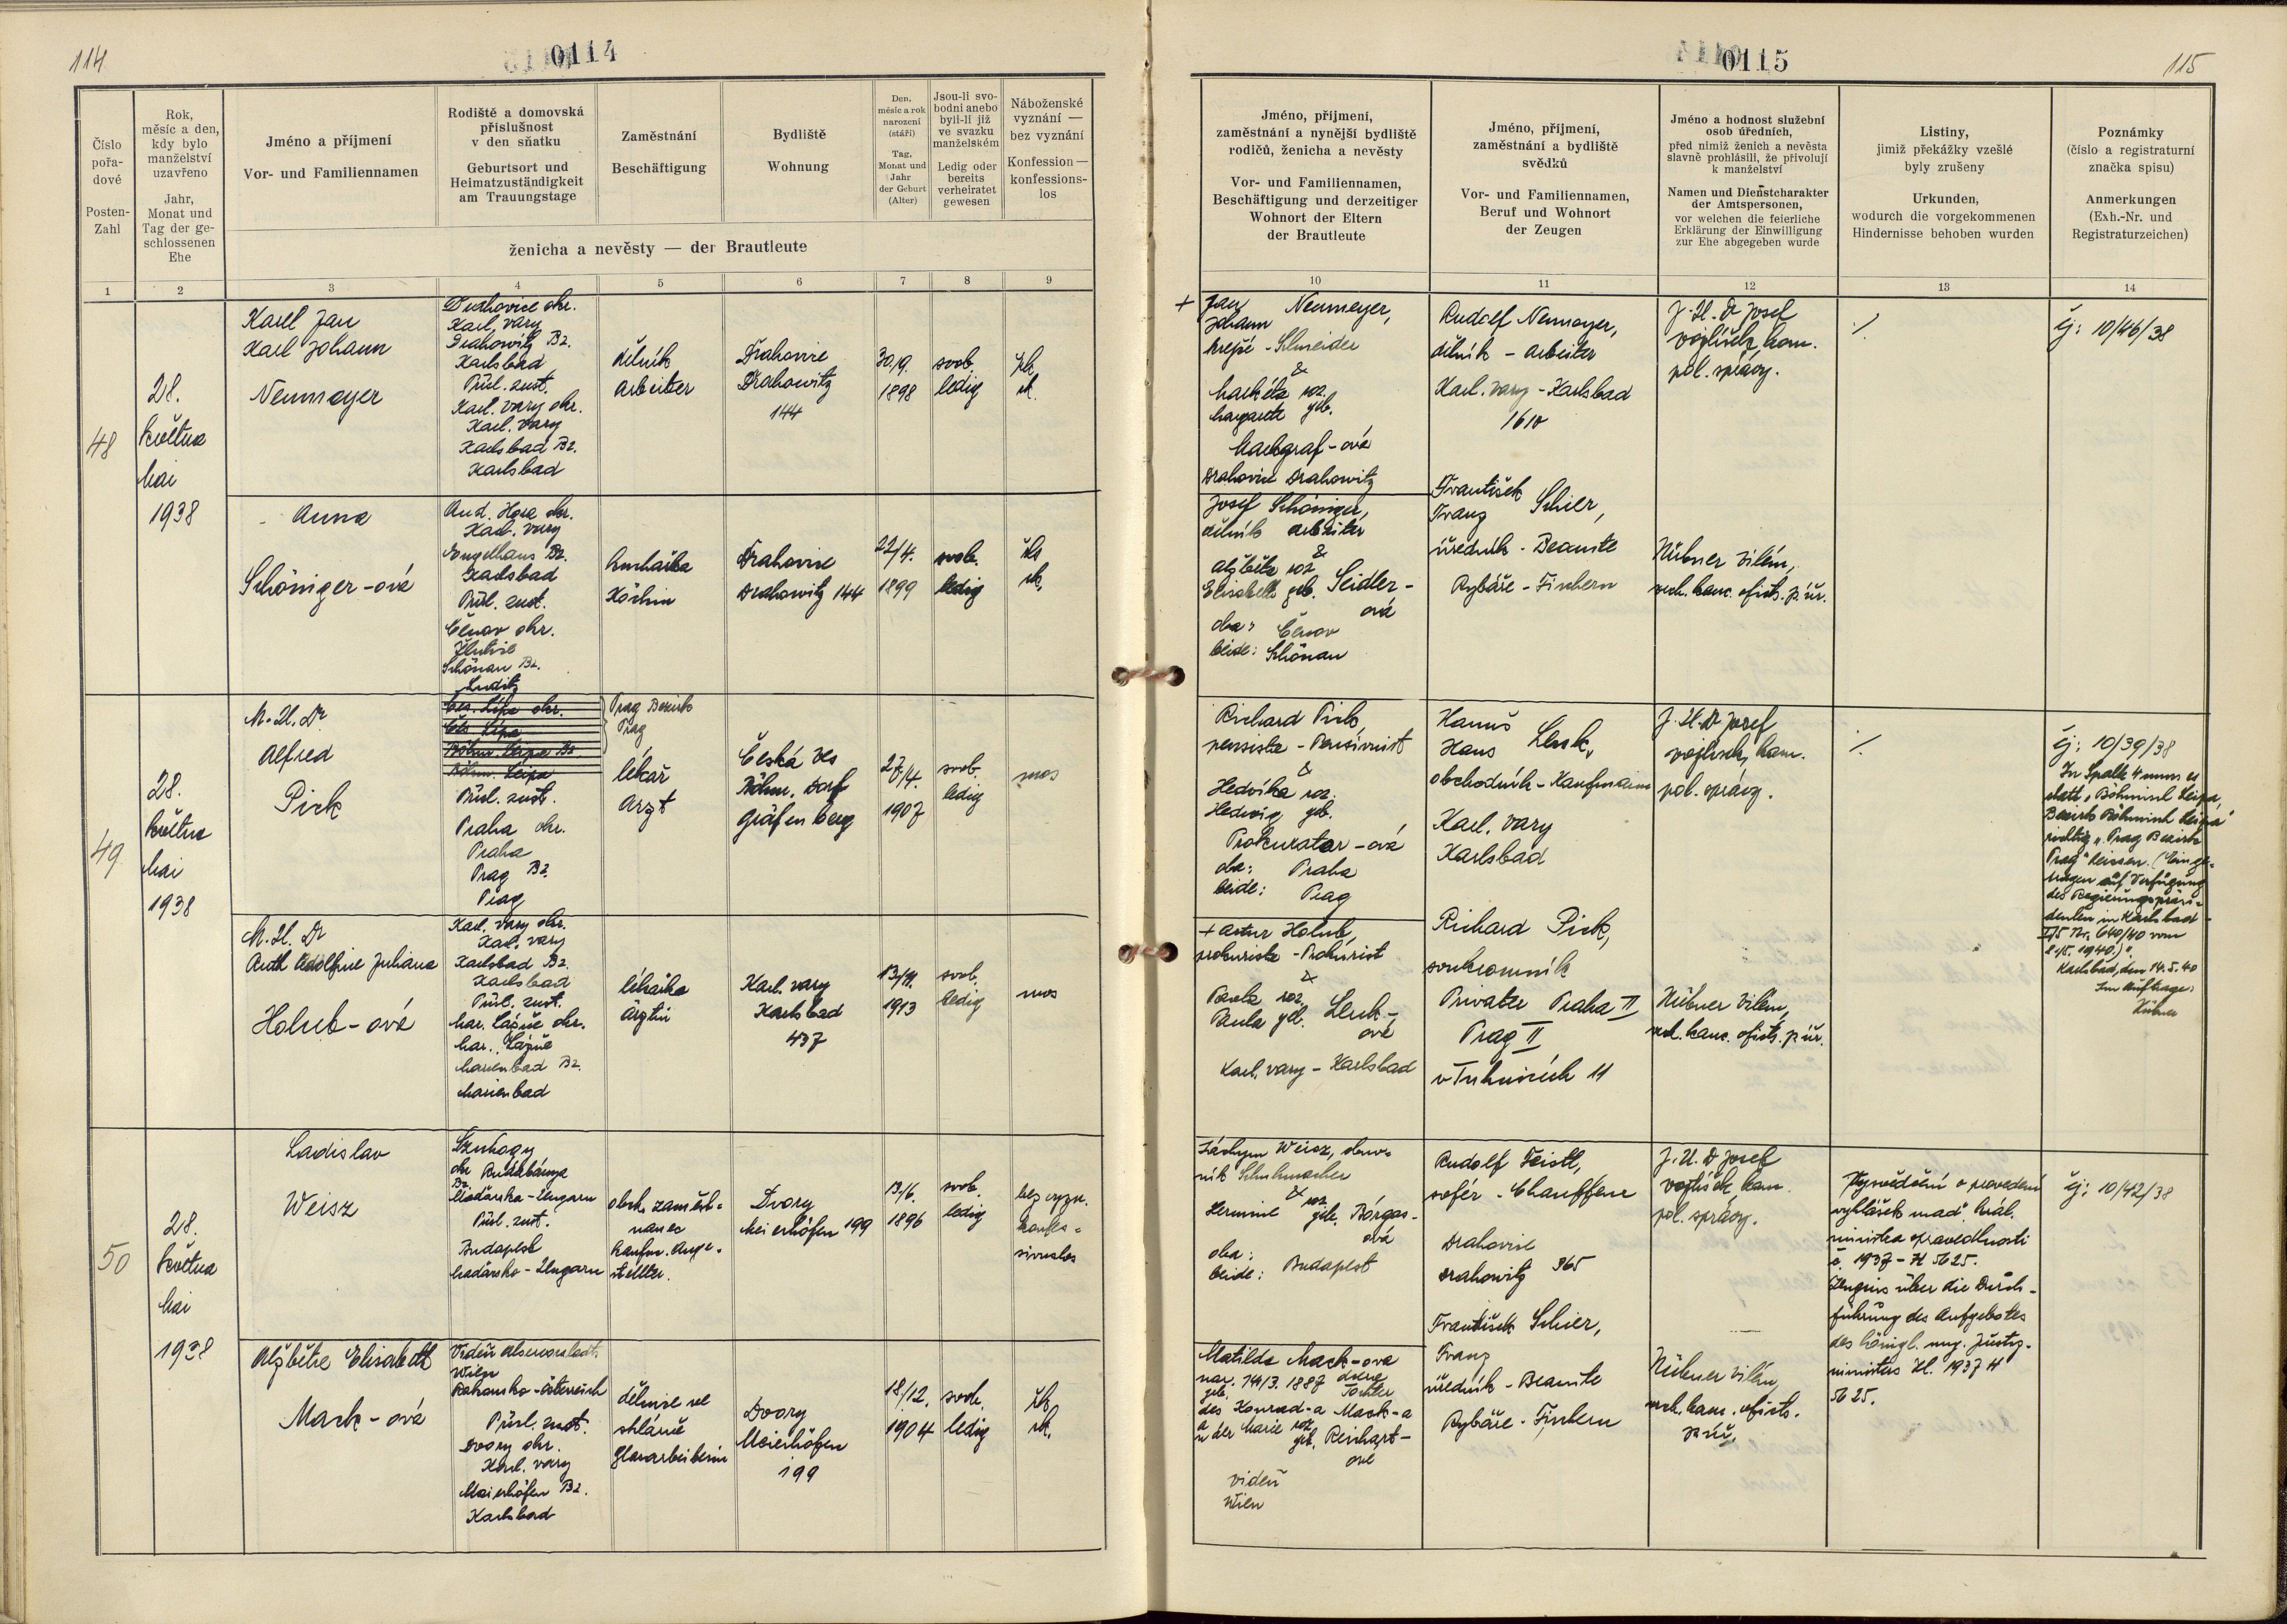 114
0114
Číslo
pořa-
dové
Posten-
Zahl
Rok,
měsíc a den,
kdy bylo
manželství
uzavřeno
Jahr,
Monat und
Tag der ge-
schlossenen
Ehe
Jméno a příjmení
Vor- und Familiennamen
Rodiště a domovská
příslušnost
v den sňatku
Geburtsort und
Heimatzuständigkeit
am Trauungstage
Zaměstnání
Beschäftigung
Bydliště
Wohnung
Den,
měsíc a rok
narození
(stáří)
Tag,
Monat und
Jahr
der Geburt
(Alter)
Jsou-li svo-
bodni anebo
byli-li již
ve svazku
manželském
Ledig oder
bereits
verheiratet
gewesen
Náboženské
vyznání —
bez vyznání
Konfession —
konfessions-
los
ženicha a nevěsty — der Brautleute
1 2 3 4 5 6 7 8 9
48
28.
května
Mai
1938
Karel Jan
Karl Johann
Neumayer
Drahovice okr.
Karl. vary
Drahowitz Bz.
Karlsbad
Přísl. zust.
Karl. vary okr.
Karl. vary
Karlsbad Bz.
Karlsbad
dělník
Arbeiter
Drahovice
Drahowitz
144
30/9.
1898
svob.
ledig
řk
rk.
Anna
Schöniger-ová
And. Hora okr.
Karl. vary
Engelhaus Bz.
Karlsbad
Přísl. zust.
Čenov okr.
Žlutice
Schönau Bz.
Luditz
kuchařka
Köchin
Drahovice
Drahowitz 144
22/4.
1899
svob.
ledig
řk
rk.
49
28.
května
Mai
1938
M. U. Dr
Alfred
Pick
Čes. Lípa okr.
Čes. Lípa
Böhm. Leipa Bz.
Böhm. Leipa
Přísl. zust.
Praha okr.
Praha
Prag Bz.
Prag
Prag Bezirk
Prag
lékař
Arzt
Česká Ves
Böhm. Dorf
Gräfenberg
27/4.
1907
svob.
ledig
mos
M. U. Dr
Ruth Adolfine Juliana
Holub-ová
Karl. vary okr.
Karl. vary
Karlsbad Bz.
Karlsbad
Přísl. zust.
Mar. Lázně okr.
Mar. Lázně
Marienbad Bz.
Marienbad
lékařka
Ärztin
Karl. vary
Karlsbad
437
1913
svob.
ledig
mos
50
28.
května
Mai
1938
Ladislav
Weisz
Szuhogy
okr Rudabánya
Bz
Maďarsko-Ungarn
Přísl. zust.
Budapest
Maďarsko-Ungarn
obch. zaměst-
nanec
kaufm. Ange-
stellter.
Dvory
Meierhöfen 199
13/6.
1896
svob.
ledig
bez vyzn.
konfes-
sionslos
Alžběta Elisabeth
Mack-ová
Vídeň Alservorstadt.
Wien
Rakousko-Österreich
Přísl. zust.
Dvory okr.
Karl. vary
Maierhöfen Bz.
Karlsbad
dělnice ve
sklárně
Glasarbeiterin
Dvory
Meierhöfen
199
18/12.
1904
svob.
ledig
řk
rk.
0115
115
Jméno, příjmení,
zaměstnání a nynější bydliště
rodičů, ženicha a nevěsty
Vor- und Familiennamen,
Beschäftigung und derzeitiger
Wohnort der Eltern
der Brautleute
Jméno, příjmení,
zaměstnání a bydliště
svědků
Vor- und Familiennamen,
Beruf und Wohnort
der Zeugen
Jméno a hodnost služební
osob úředních,
před nimiž ženich a nevěsta
slavně prohlásili, že přivolují
k manželství
Namen und Dienstcharakter
der Amtspersonen,
vor welchen die feierliche
Erklärung der Einwilligung
zur Ehe abgegeben wurde
Listiny,
jimiž překážky vzešlé
byly zrušeny
Urkunden,
wodurch die vorgekommenen
Hindernisse behoben wurden
Poznámky
(číslo a registraturní
značka spisu)
Anmerkungen
(Exh.-Nr. und
Registraturzeichen)
10 11 12 13 14
+ Jan Neumayer,
Johann
krejčí - Schneider
&
Markéta roz.
Margarete geb.
Markgraf-ová
Drahovice Drahowitz
Rudolf Neumayer,
dělník - Arbeiter
Karl. vary - Karlsbad
1610
J. U. Dr Josef
Vojtíšek, kom.
pol. správy.
./.
čj: 10/46/38
Josef Schöniger,
dělník Arbeiter
&
Alžběta roz
Elisabeth geb. Seidler-
ová
oba: Čenov
beide: Schönau
František
Franz Schier,
úředník - Beamte
Rybáře - Fischern
Hübner Vilém,
vrch. kanc. ofics. p. úř.
Richard Pick,
pensista - Pensionist
&
Hedvika roz.
Hedwig geb.
Prokurator-ová
oba: Praha
beide: Prag
Hanuš
Hans Lenk,
obchodník - Kaufmann
Karl. vary
Karlsbad
J. U. Dr Josef
Vojtíšek, kom.
pol. správy.
./.
čj: 10/39/38
In Spalte 4 muss es
statt „Böhmisch Leipa,
Bezirk Böhmisch Leipa"
richtig „Prag Bezirk
Prag" heissen. (Einge-
tragen auf Verfügung
des Regierungspräsi-
denten in Karlsbad -
I/5 Nr. 640/40 vom
1940.)".
Karlsbad, den 14. 5. 40
Im Auftrage:
Hübner
+ Artur Holub,
prokurista - Prokurist
&
Pavla roz.
Paula geb. Lenk-
ová
Karl. vary - Karlsbad
Richard Pick,
soukromník
Privater Praha II
Prag II
v Tůních 11
Hübner Vilém,
vrch. kanc. ofics. p. úř.
Weisz, obuv-
ník Schuhmacher
&
Hermine roz. geb. Borgas-
ová
oba:
beide: Budapest
Rudolf Feistl,
šofér - Chauffeur
Drahovice
Drahowitz 365
J. U. Dr Josef
Vojtíšek, kom.
pol. správy.
Vysvědčení o provedení
vyhlášek maď. král.
ministra spravedlnosti
č. 1937 - H 5625.
Zeugnis über die Durch-
führung des Aufgebotes
des königl. ung. Justiz-
ministers Zl. 1937 H
5625.
čj: 10/42/38
Matilda Mack-ova
nar. 14/3. 1887 dcera
geb. Tochter
des Konrad-a Mack-a
a
u der Marie roz. geb. Reichart-
ové
Vídeň
Wien
František Schier,
Franz
úředník - Beamte
Rybáře - Fischern
Hübner Vilém
vrch. kanc. ofics.
p. úř.